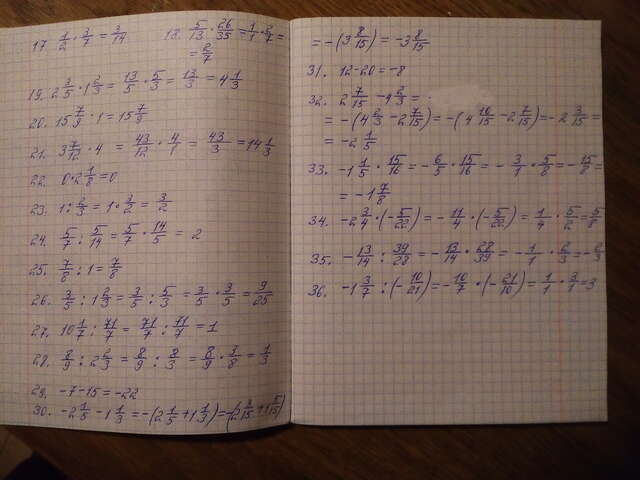 17. 1/2 · 3/7 = 3/14 18. 5/13 · 26/35 = 1/1 · 2/7 =
= 2/7
19. 2 3/5 · 1 2/3 = 13/5 · 5/3 = 13/3 = 4 1/3
20. 15 7/9 · 1 = 15 7/9
21. 3 7/12 · 4 = 43/12 · 4/1 = 43/3 = 14 1/3
22. 0 · 2 1/8 = 0
23. 1 : 2/3 = 1 · 3/2 = 3/2
24. 5/7 : 5/14 = 5/7 · 14/5 = 2
25. 7/8 : 1 = 7/8
26. 3/5 : 1 2/3 = 3/5 : 5/3 = 3/5 · 3/5 = 9/25
27. 10 1/7 : 71/7 = 71/7 : 71/7 = 1
28. 8/9 : 2 2/3 = 8/9 : 8/3 = 8/9 · 3/8 = 1/3
29. -7-15 = -22
30. -2 1/5 - 1 1/3 = -(2 1/5 + 1 1/3) = -(2 3/15 + 1 5/15)
= -(3 8/15) = -3 8/15
31. 12-20 = -8
32. 2 7/15 - 4 2/3 =
= -(4 2/3 - 2 7/15) = -(4 10/15 - 2 7/15) = -2 3/15 =
= -2 1/5
33. -1 1/5 · 15/16 = -6/5 · 15/16 = -3/1 · 5/8 = -15/8 =
= -1 7/8
34. -2 3/4 · (-5/22) = -11/4 · (-5/22) = 1/4 · 5/2 = 5/8
35. -13/14 : 39/28 = -13/14 · 28/39 = -1/1 · 2/3 = -2/3
36. -1 3/7 : (-10/21) = -10/7 · (-21/10) = 1/1 · 3/1 = 3